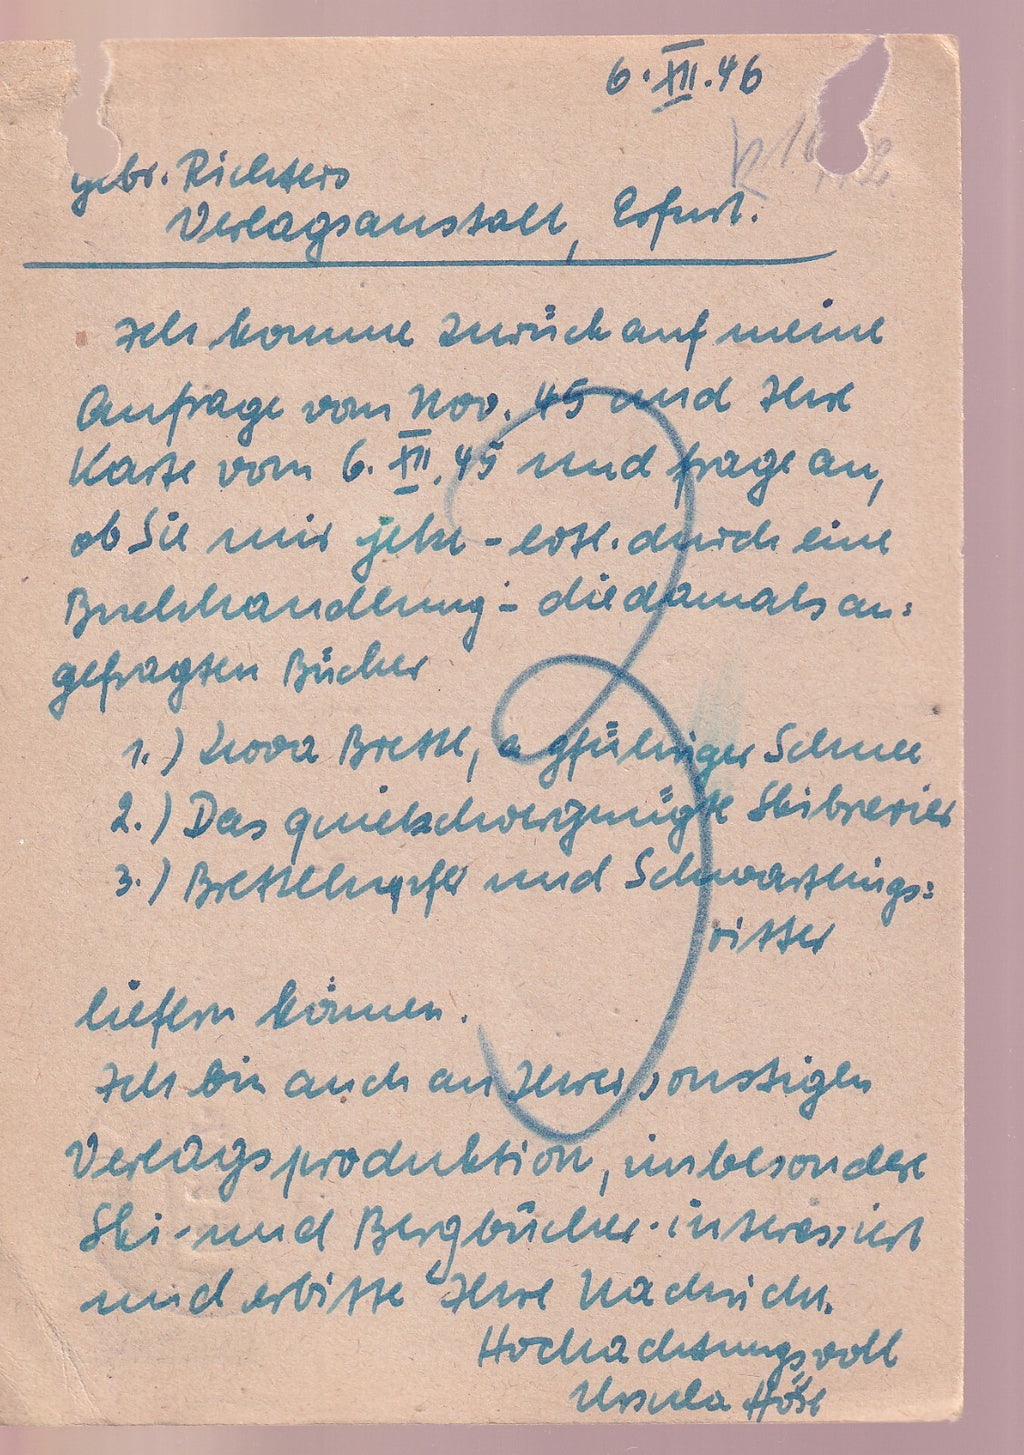 6.XII.46
Gebr. Richters
Verlagsanstalt, Erfurt.
Ich komme zurück auf meine
Anfrage vom Nov. 45 und Ihre
Karte vom 6. XII. 45 und frage an,
ob Sie mir jetzt - evtl. durch eine
Buchhandlung - die damals an=
gefragten Bücher
1.) Zwoa Brettl, a gführiger Schnee
2.) Das quietschvergnügte Skibrevier
3.) Brettlhupfer und Schwartlings=
ritter
liefern können.
Ich bin auch an Ihrer sonstigen
Verlagsproduktion, insbesondere
Ski- und Bergbücher interessiert
und erbitte Ihre Nachricht.
Hochachtungsvoll
Ursula